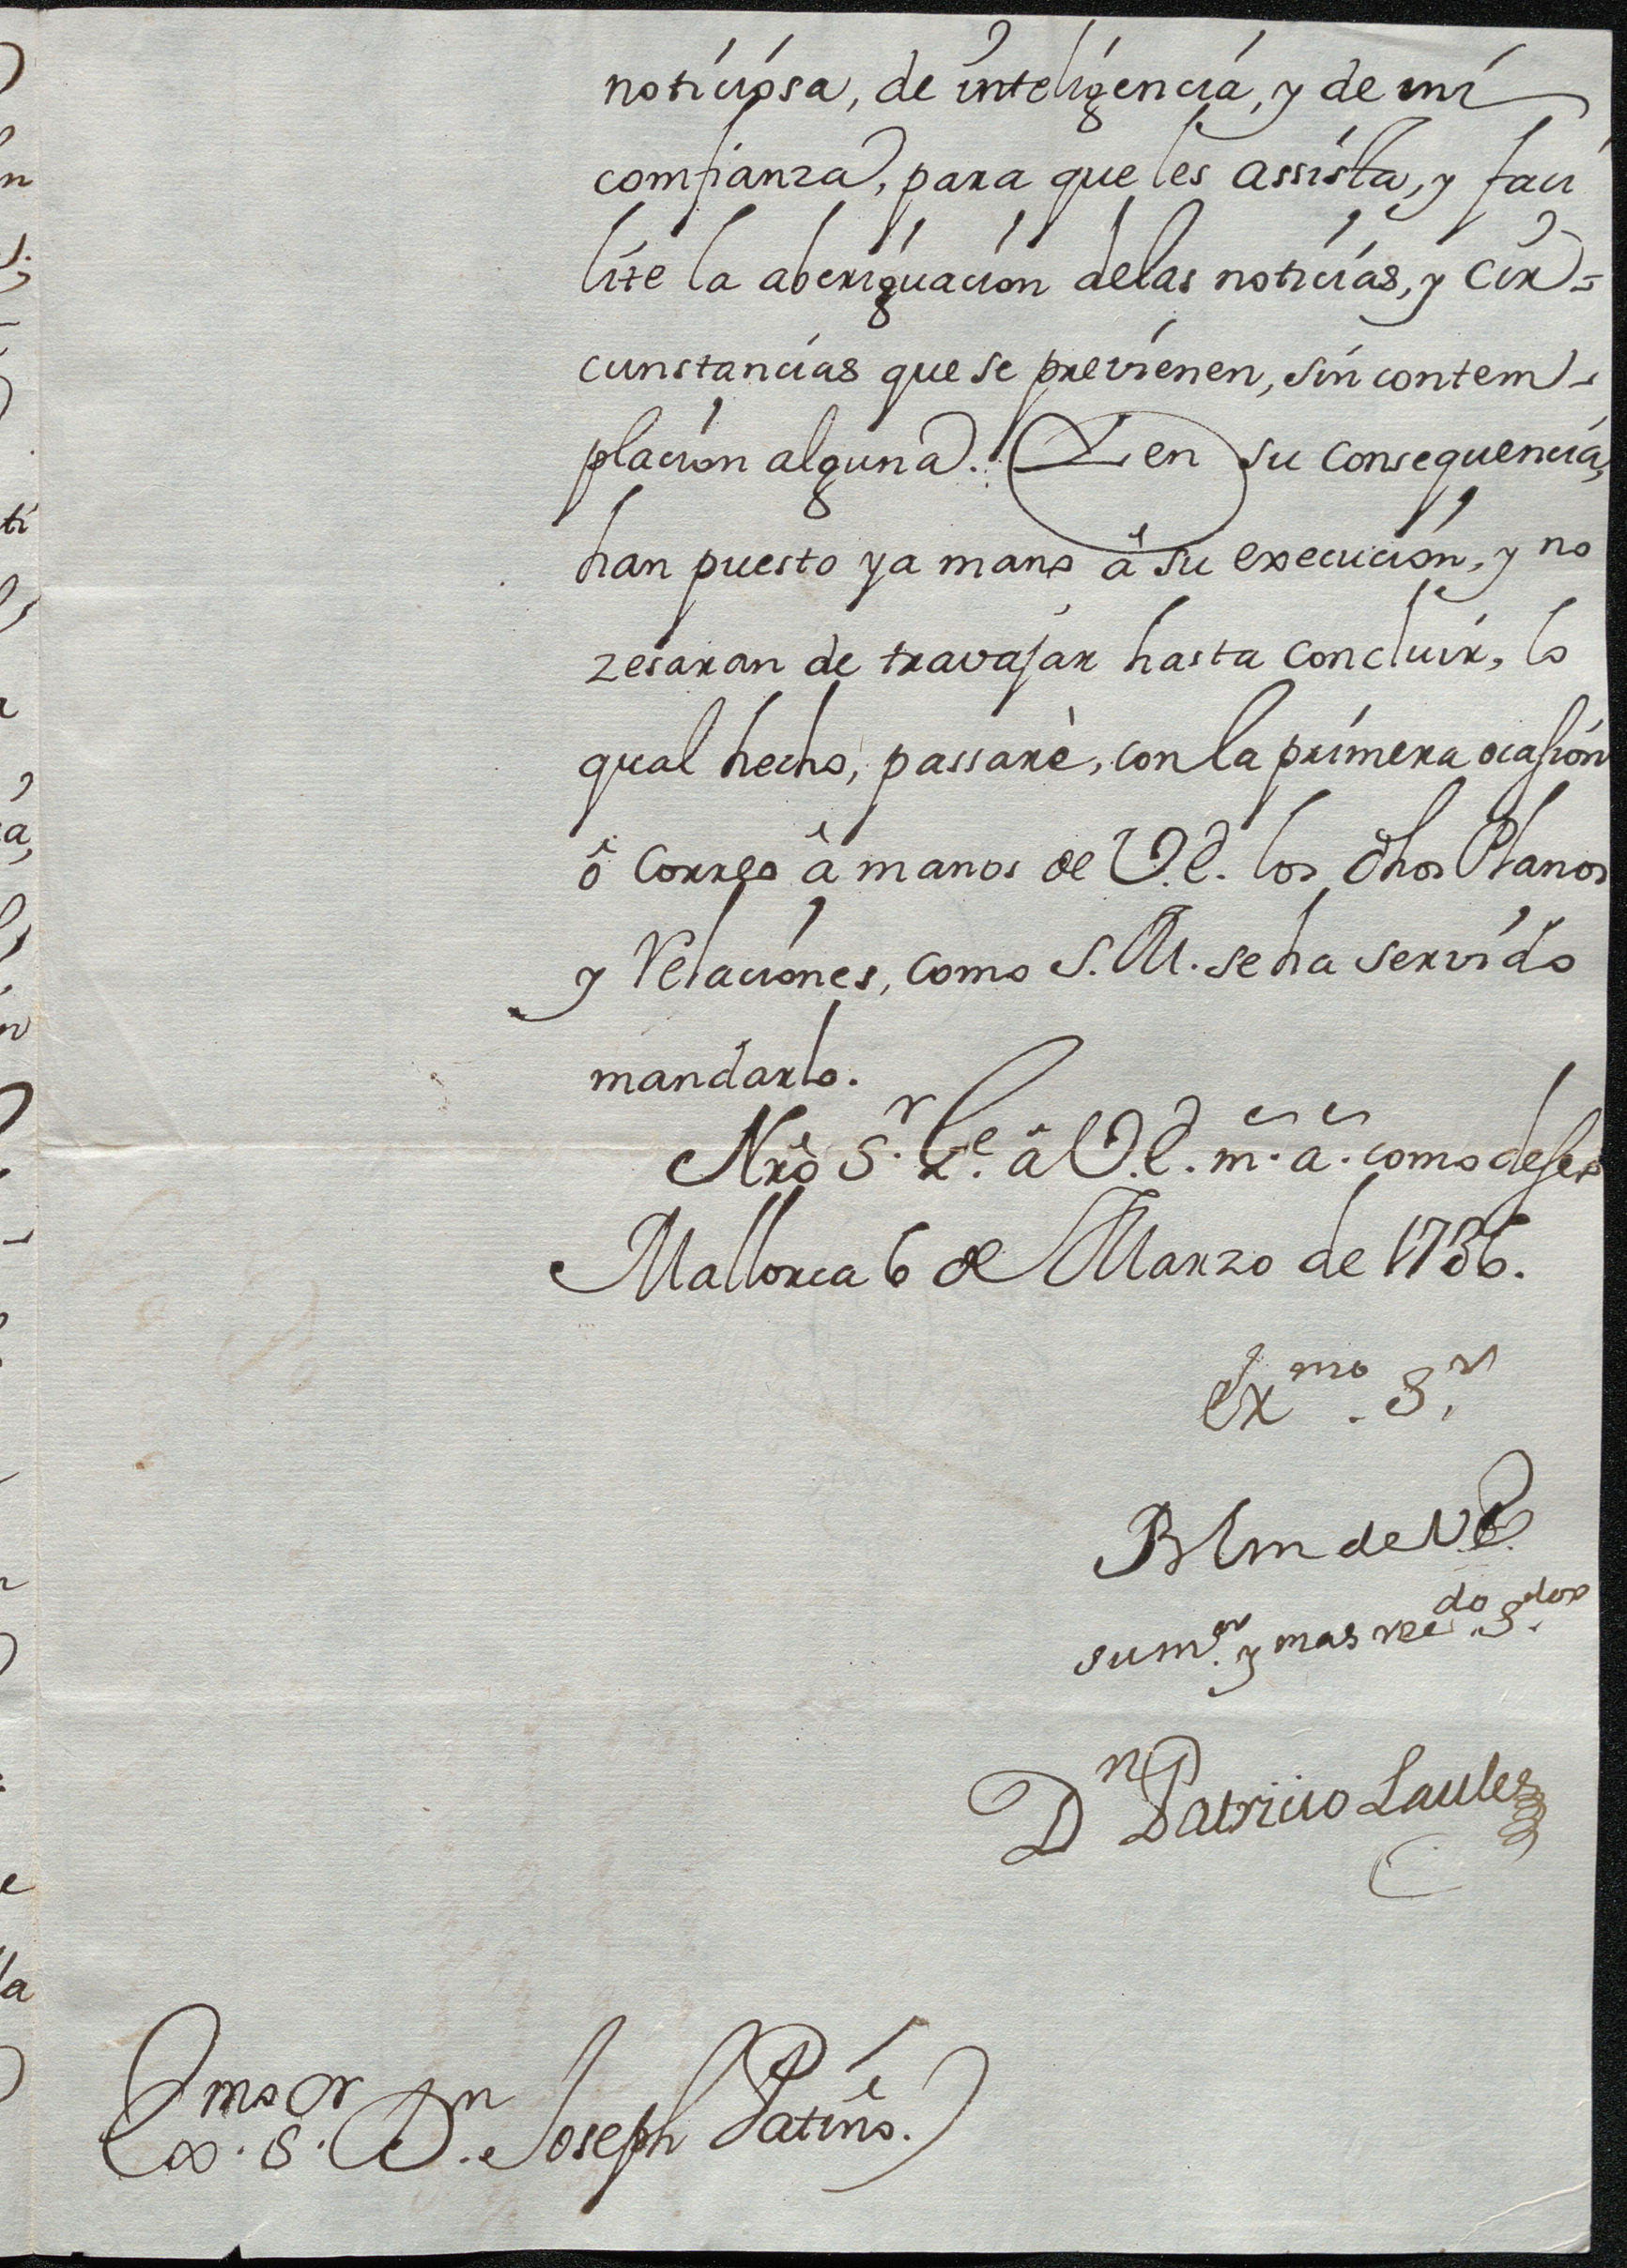 noticiosa, de inteligencia, y de mi
comfianza, para que les assista, y faci
lite la aberiguacion delas noticias, y cir=
cunstancias que se previenen, sin contem-
placion alguna. Y en su consequencia,
han puesto ya mano â su execucion, y no
zesaran de travajar hasta concluir, lo
qual hecho, passarè, con la primera ocasion
ô correo â manos de V.E. los dhos Planos
y Relaciones, como S.M. se ha servido
mandarlo.
Nrô S.r g.e â V.E. m.s a.s como deseo
Mallorca 6 de Marzo de 1736.
Ex.mo S.r
Blm de V.E.
su m.or y mas rec.do S.dor
D.n Patricio Laules
Ex.mo S.or D.n Joseph Patiño.